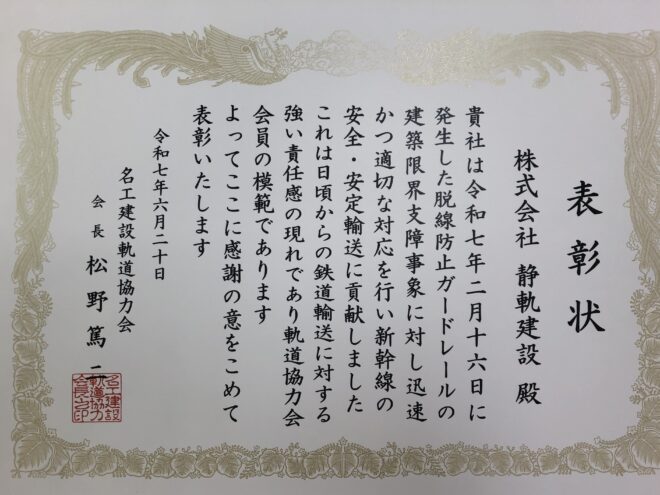 表彰状
株式会社 静軌建設 殿
貴社は令和七年二月十六日に
発生した脱線防止ガードレールの
建築限界支障事象に対し迅速
かつ適切な対応を行い新幹線の
安全・安定輸送に貢献しました
これは日頃からの鉄道輸送に対する
強い責任感の現れであり軌道協力会
会員の模範であります
よってここに感謝の意をこめて
表彰いたします
令和七年六月二十日
名工建設軌道協力会
会長 松野篤二
名工建設
軌道協力
会長之印